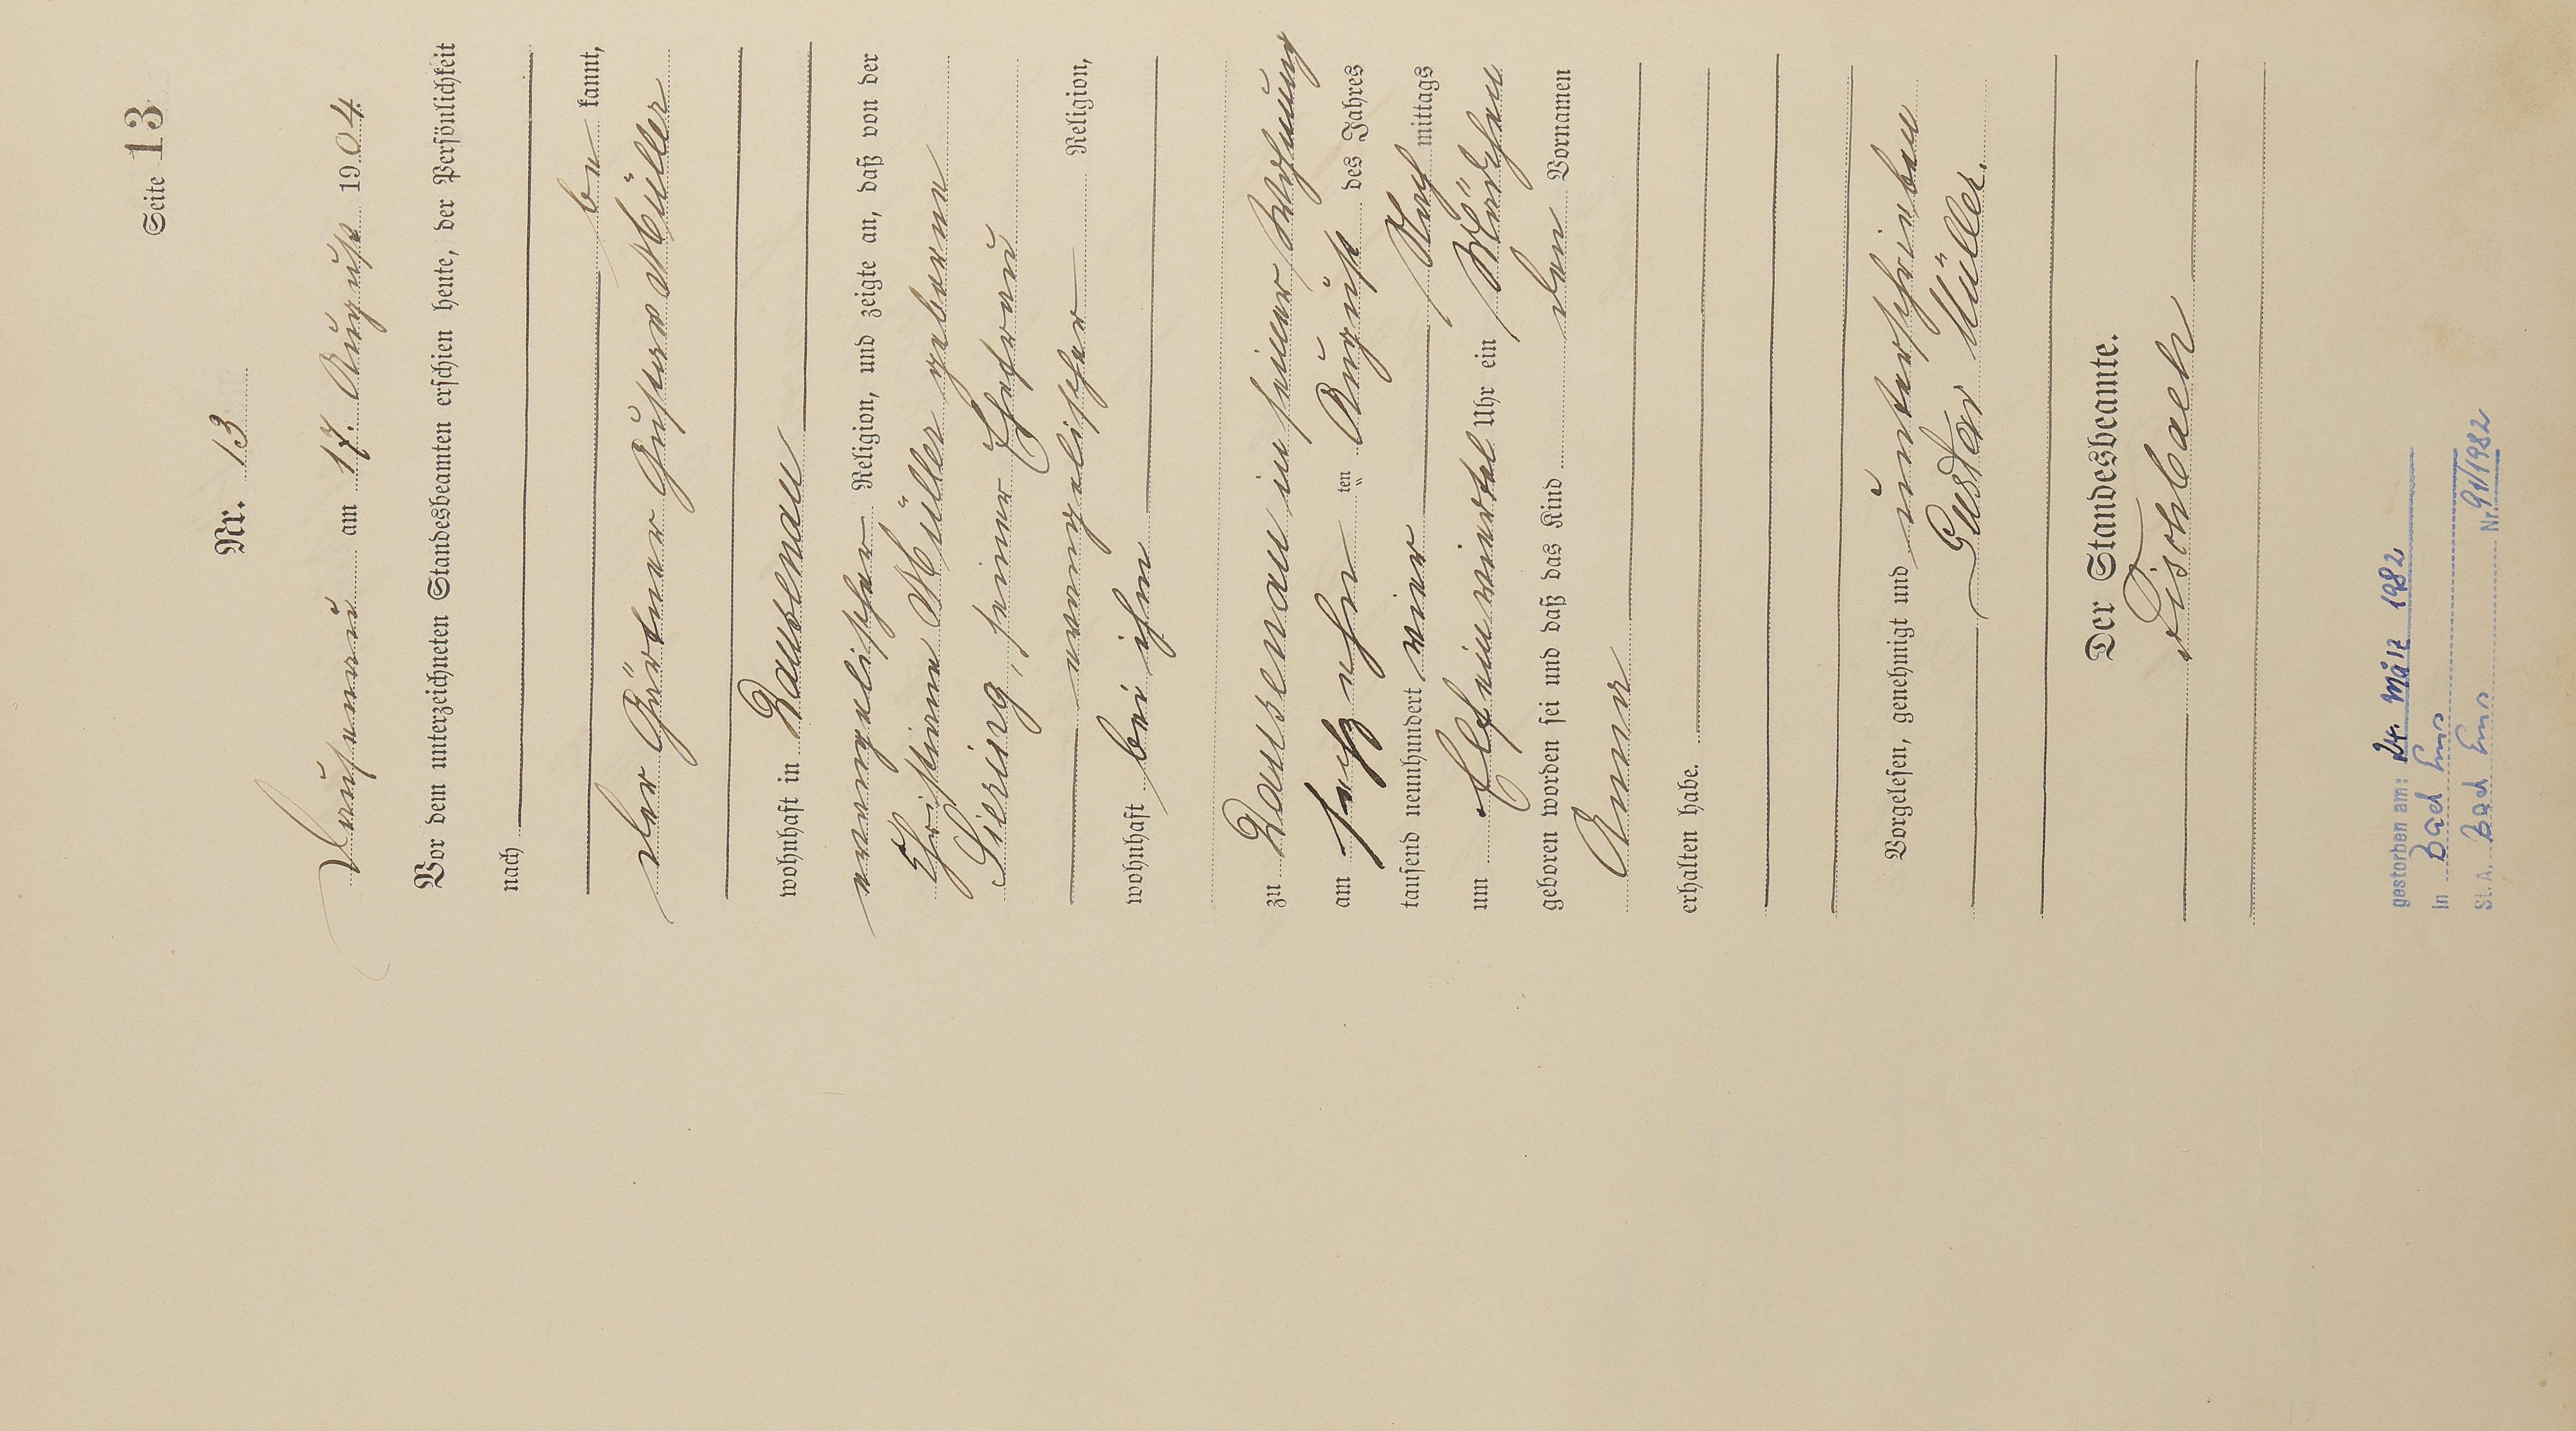 Seite 13
Nr. 13
Dausenau am 17. August 1904
Vor dem unterzeichneten Standesbeamten erschien heute, der Persönlichkeit
nach
be kannt,
der Gärtner Gustav Müller
wohnhaft in Dausenau
evangelischer Religion, und zeigte an, daß von der
Christiane Müller geborene
, seiner Ehefrau
evangelischer Religion,
wohnhaft bei ihm
zu Dausenau in seiner Wohnung
am sechzehn ten August des Jahres
tausend neunhundert vier Nach mittags
um Elfeinviertel Uhr ein Mädchen
geboren worden sei und daß das Kind den Vornamen
Anna
erhalten habe.
Vorgelesen, genehmigt und unterschrieben
Gustav Müller.
Der Standesbeamte.
gestorben am: 24. März 1982
in Bad Ems
St. A. Bad Ems Nr. 91/1982